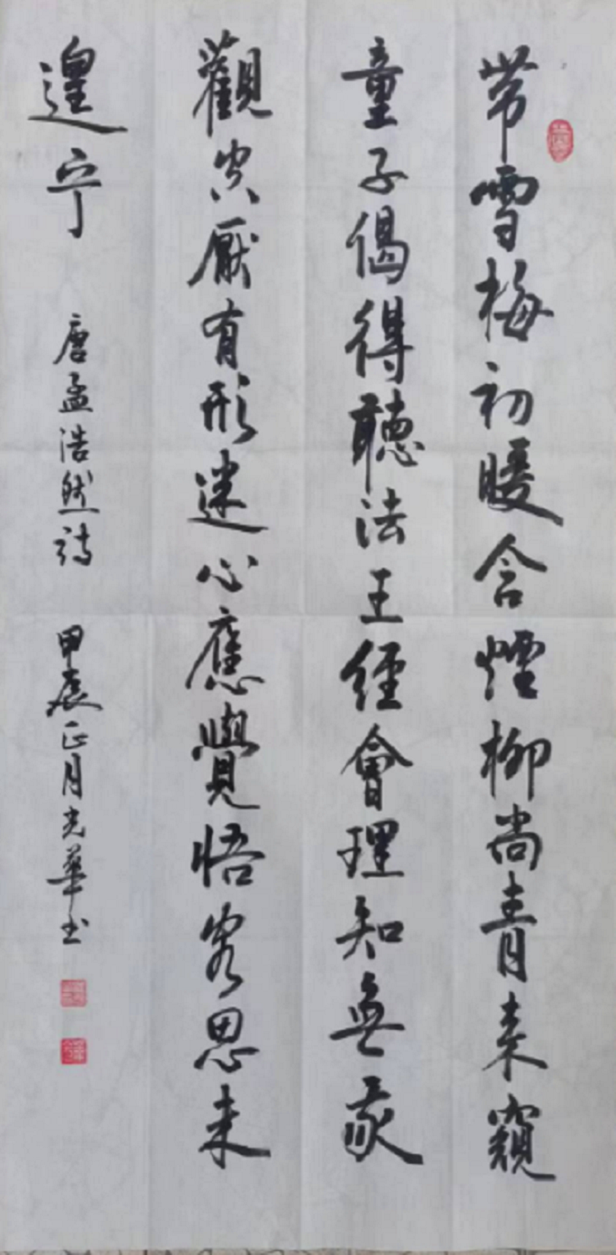 带雪梅初暖含煙柳尚青来窺
童子偈得聽法王經會理知無我
觀空厭有形迷心應覺悟客思未
遑宁 唐孟浩然詩 甲辰正月光華书